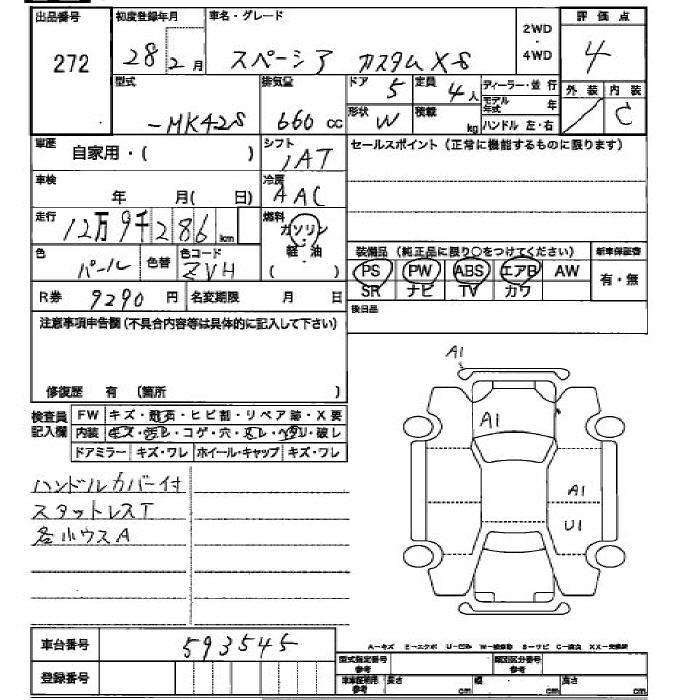 出品番号 初度登録年月 車名・グレード 評価点
272 28 2月 スペーシア カスタムXS 2WD・4WD 4
型式 排気量 ドア 5 定員 4人 ディーラー・並行 外装 内装
-MK42S 660 cc 形状 W 積載 kg モデル年式 年 ハンドル 左・右 C
車歴 自家用・( ) シフト IAT セールスポイント(正常に機能するものに限ります)
車検 年 月( 日) 冷房 AAC
走行 12万9千286 km 燃料 ガソリン・軽・油 ( )
色 パール 色替 色コード ZVH 装備品(純正品に限り○をつけてください) 新車保証書
PS PW ABS エアB AW 有・無
SR ナビ TV カワ
R券 9290 円 名変期限 月 日 後日品
注意事項申告欄(不具合内容等は具体的に記入して下さい)
修復歴 有 (箇所 )
検査員記入欄 FW キズ・飛石・ヒビ割・リペア跡・X要
内装 キズ・汚レ・コゲ・穴・スレ・ヘタリ・破レ
ドアミラー キズ・ワレ ホイール・キャップ キズ・ワレ
A1
A1
A1
U1
ハンドルカバー付
スタットレスT
各小ウスA
車台番号 593545
登録番号
A-キズ E-エクボ U-凹み
型式指定番号 参考 類別区分番号 参考
車車証明用 参考 長さ cm 幅 cm 高さ cm